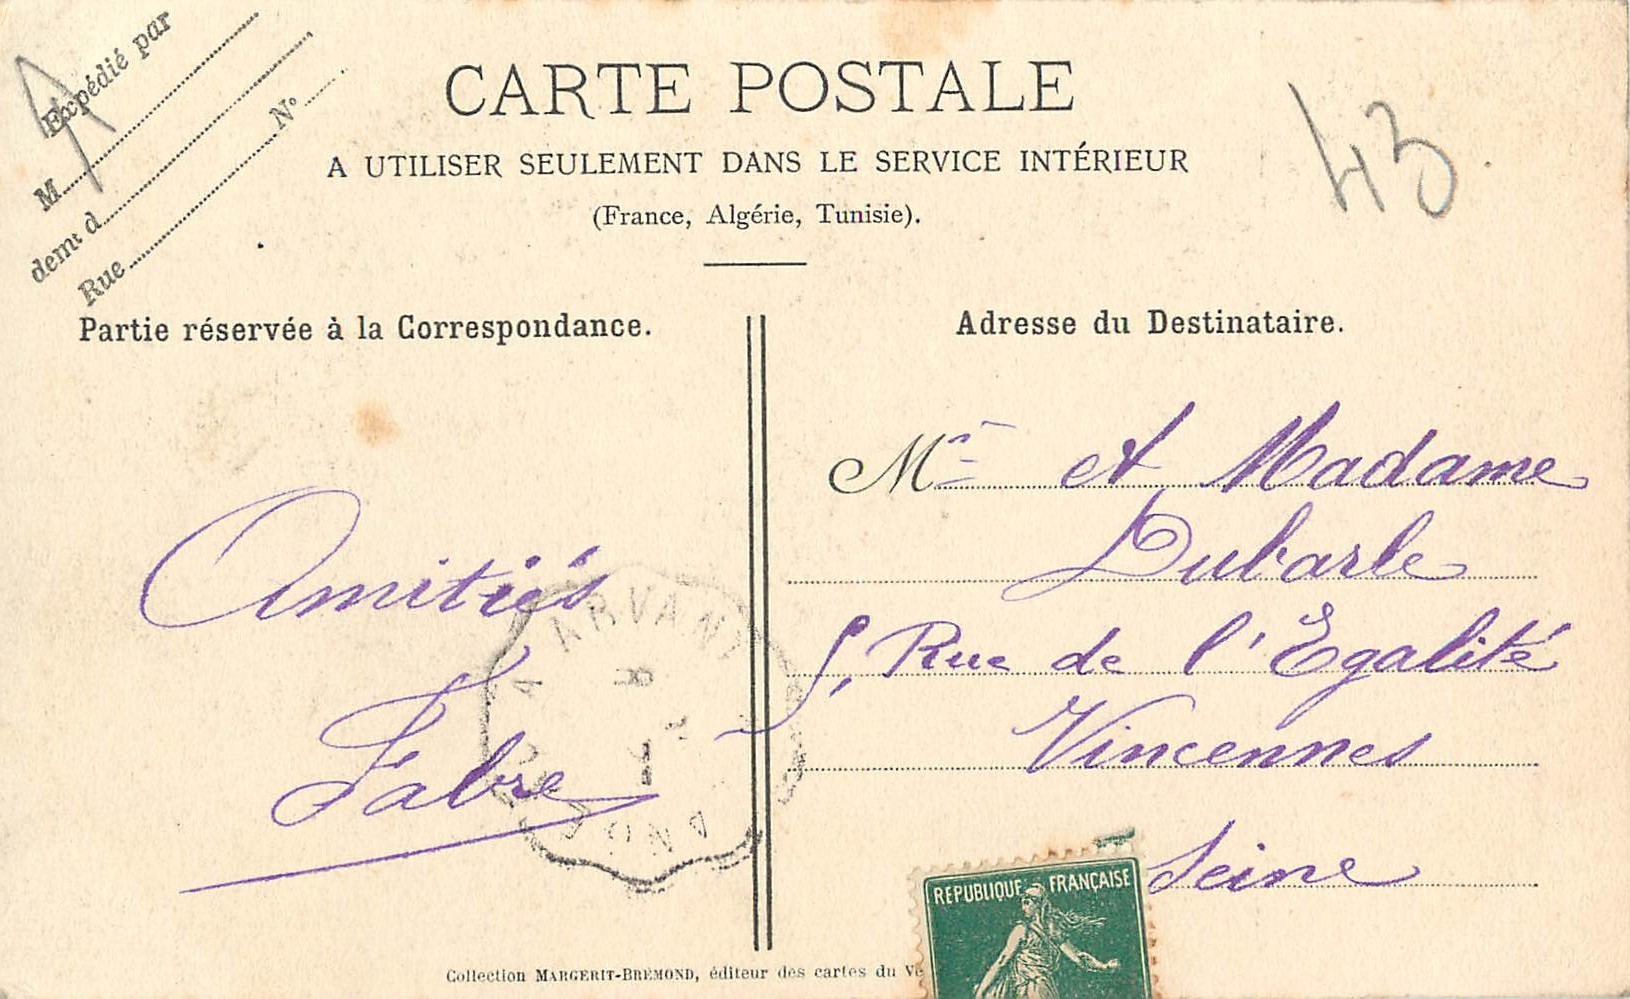 Expédié par
M
demt d
Rue
No
CARTE POSTALE
A UTILISER SEULEMENT DANS LE SERVICE INTÉRIEUR
(France, Algérie, Tunisie).
43
Partie réservée à la Correspondance.
Amitiés
Fabre
ARVANT
Adresse du Destinataire.
Mr et Madame
Dubarle
5, Rue de l'Egalité
Vincennes
Seine
REPUBLIQUE FRANÇAISE
Collection MARGERIT-BRÉMOND, éditeur des cartes du Ve